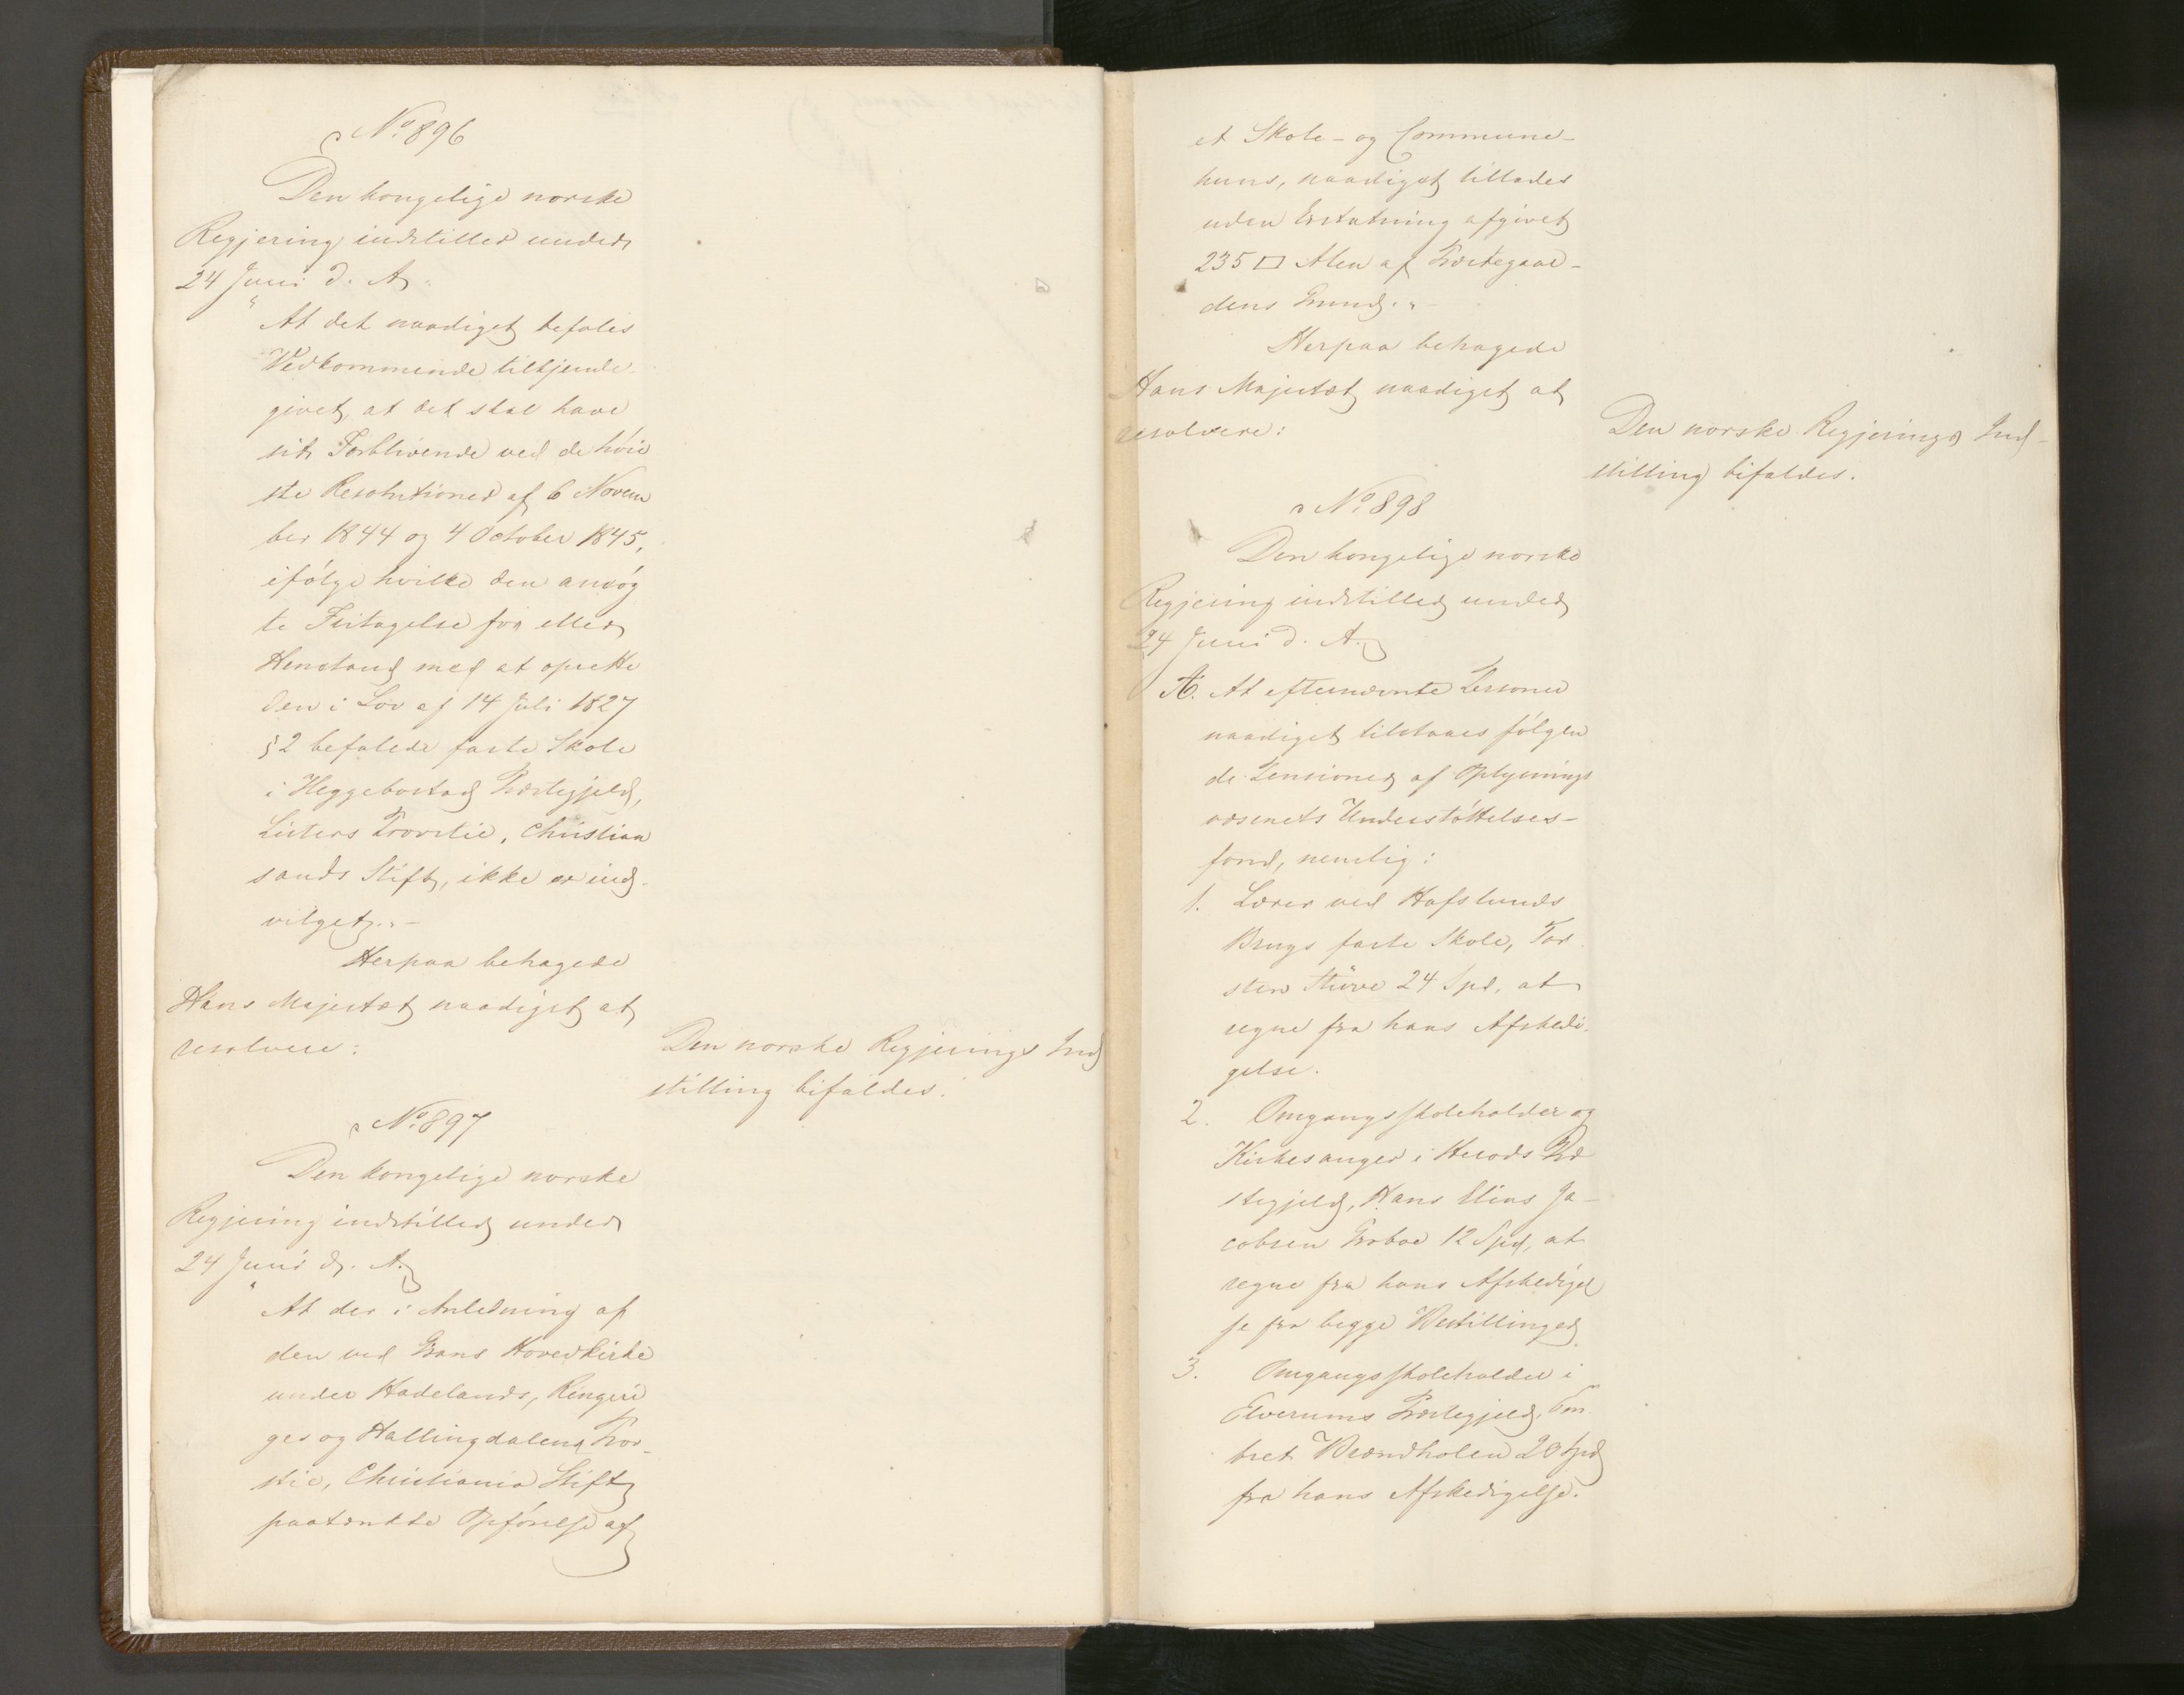 No 896
Den kongelige norske
Regjering indstiller under
24 Juni d. A.
"At det naadigst befales
Vedkommende tilkjende-
givet, at det skal have
sit Forblivende ved de høie
ste Resolutioner af 6 Novem
ber 1844 og 4 October 1845,
ifølge hvilke den ansøg
te Fritagelse for eller
Henstand med at oprette
den i Lov af 14 Juli 1827
§ 2 befalede faste Skole
i Heggebostad Præstegjeld,
Listers Provstie, Christian
sands Stift, ikke er ind-
vilget." -
Herpaa behagede
Hans Majestæt naadigst at
resolvere:
Den norske Regjerings Ind
stilling bifaldes.
No 897
Den kongelige norske
Regjering indstiller under
24 Juni d. A.
"At der i Anledning af
den ved Grans Hovedkirke
under Hadelands, Ringeri
ges og Hallingdalens Prov-
stie, Christiania Stift
paatænkte Opførelse af
et Skole- og Commune-
huus, naadigst tillades
uden Erstatning afgivet
235 □ Alen af Præstegaar-
dens Grund." -
Herpaa behagede
Hans Majestæt naadigst at
resolvere:
Den norske Regjerings Ind-
stilling bifaldes.
No 898
Den kongelige norske
Regjering indstiller under
24 Juni d. A.
A. At efternævnte Personer
naadigst tilstaaes følgen
de Pensioner af Oplysnings
væsenets Understøttelses-
fond, nemlig:
1. Lærer ved Hafslunds
Brugs faste Skole, Tor
sten 24 Spd. at
regne fra hans Afskedi-
gelse.
2. Omgangsskoleholder og
Kirkesanger i Præ
stegjeld, Hans Elias Ja-
cobsen 12 Spd, at
regne fra hans Afskedigel
se fra begge Bestillinger.
3. Omgangsskoleholder i
Elverums Præstegjeld, Em
bret Brændholen 20 Spd
fra hans Afskedigelse.